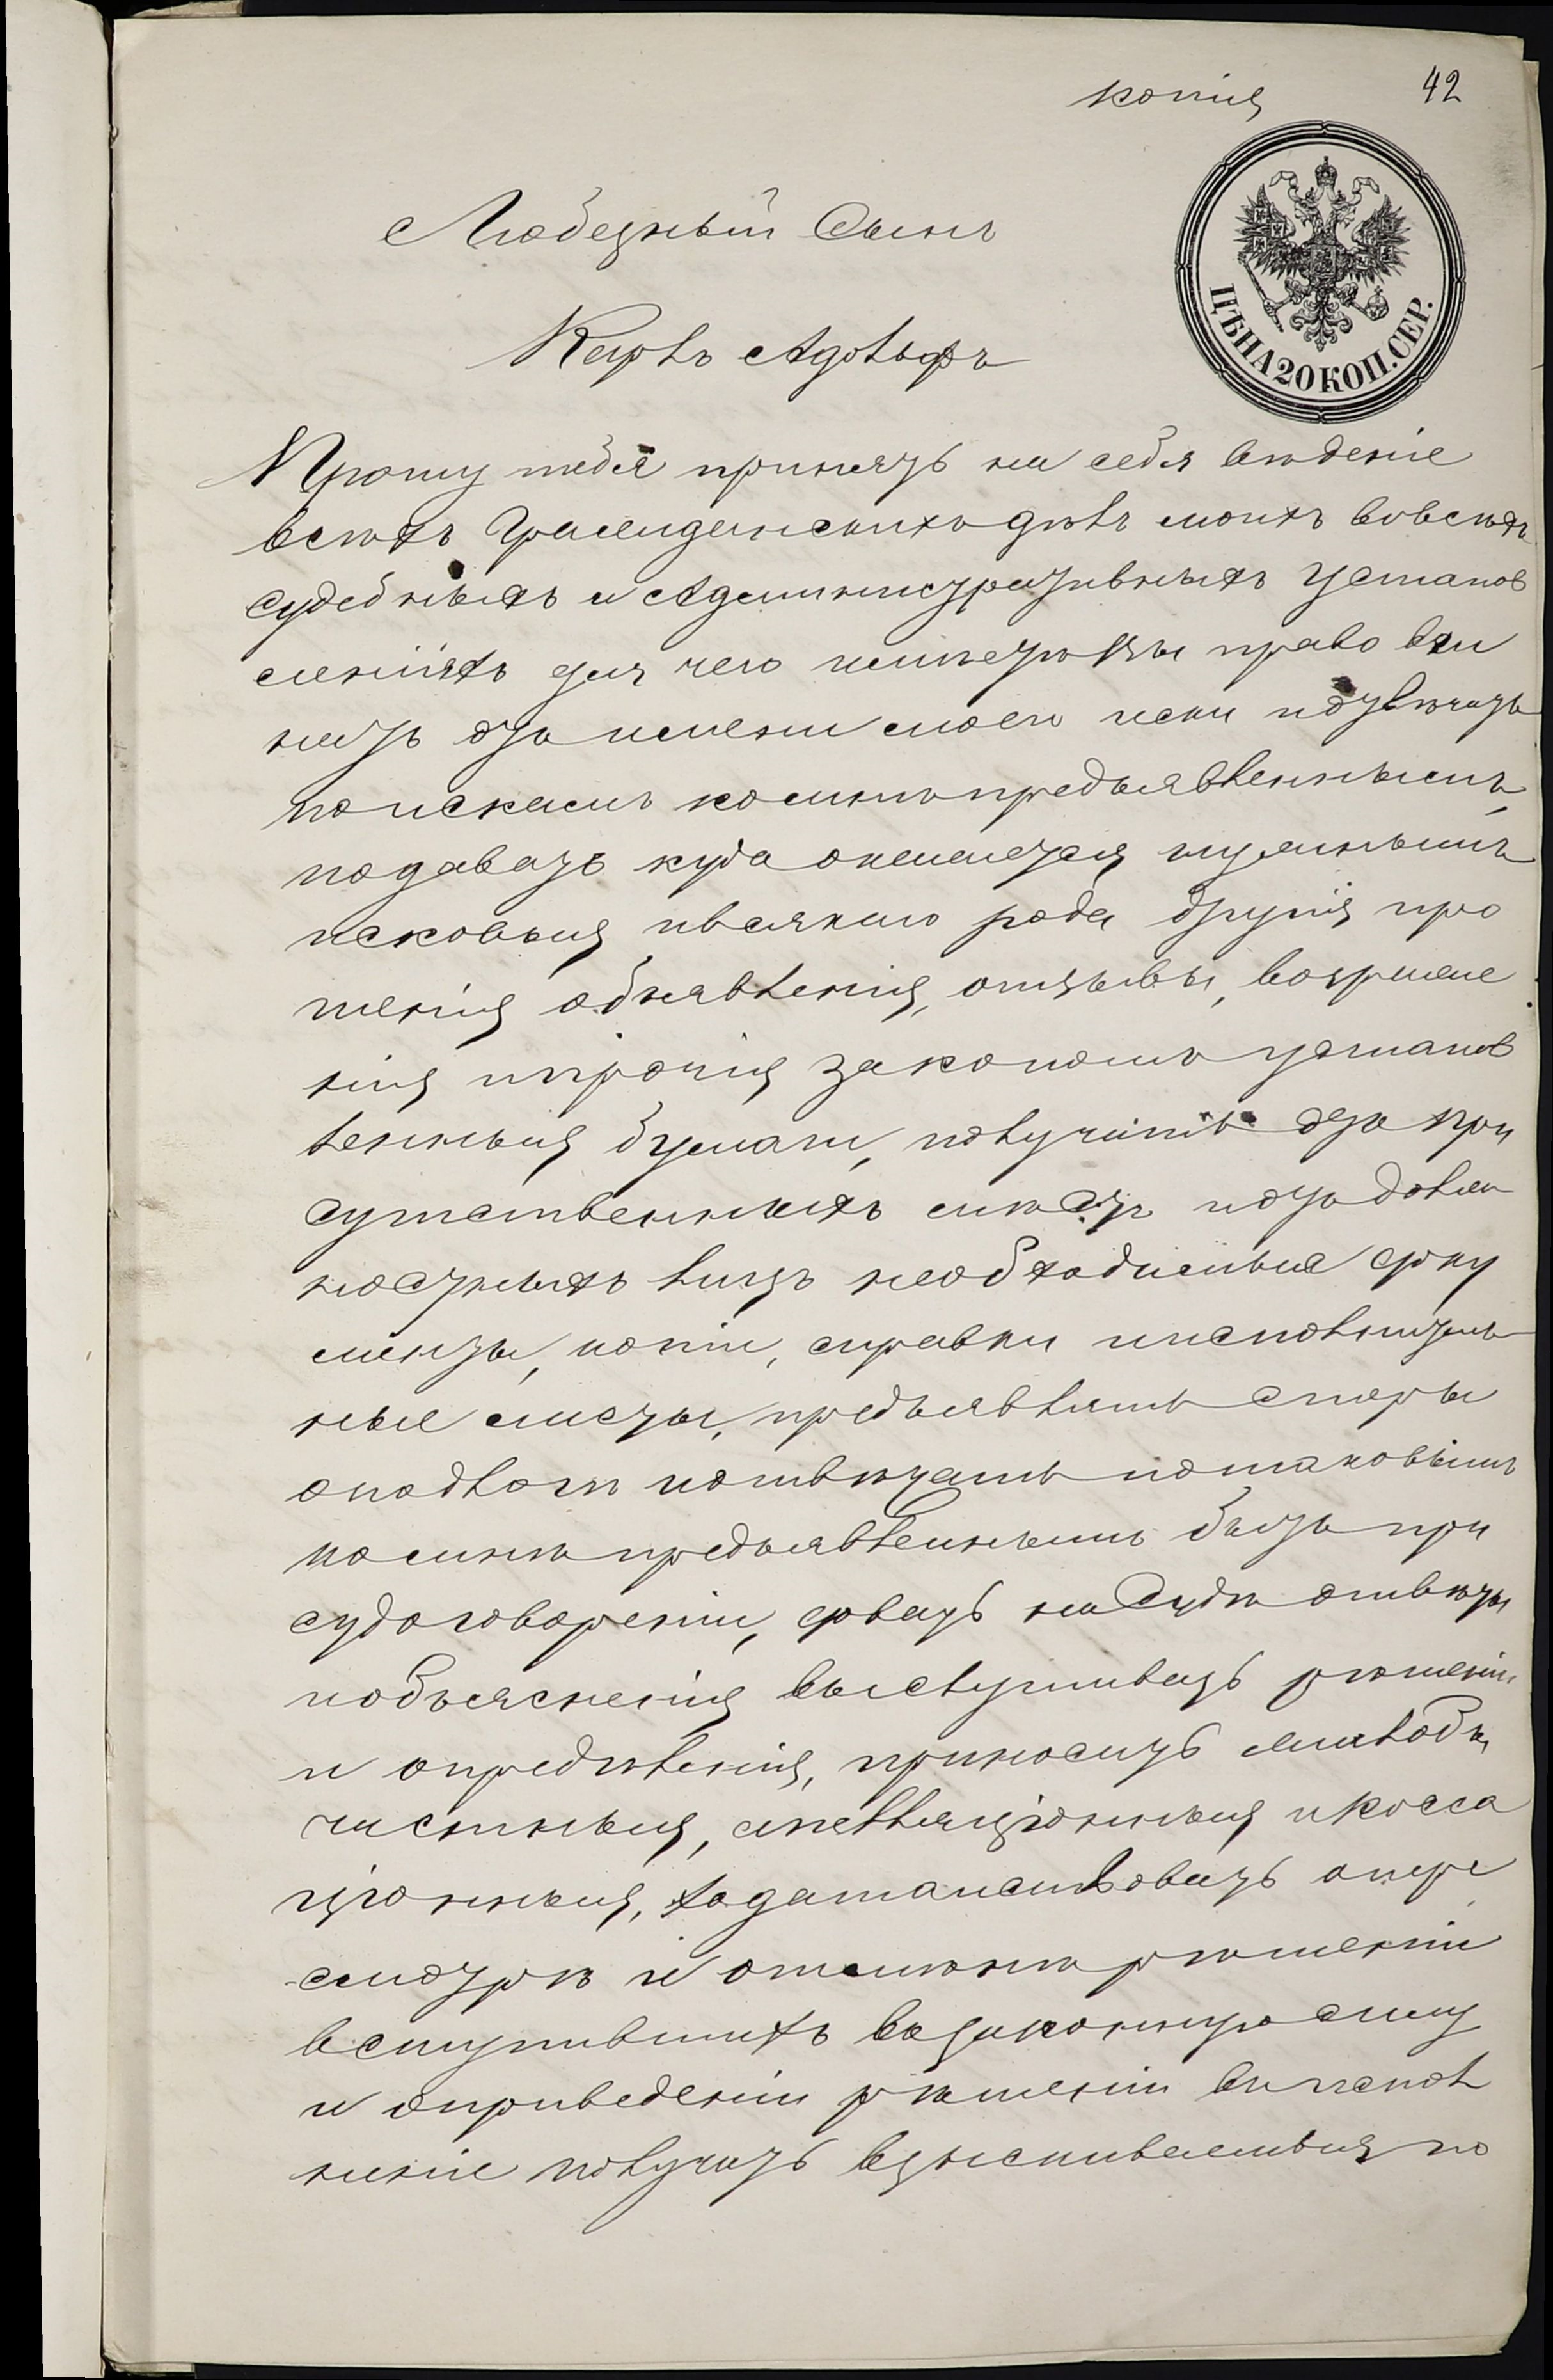 копія
42
Любезный Сынъ
ЦѢНА 20 КОП. СЕР.
Карлъ Адольфъ
Прошу тебя принять на себя вѣденіе
всѣхъ Гражданскихъ дѣлъ моихъ вовсѣхъ
судебныхъ и Административныхъ установ
леніяхъ для чего имѣетъ ты право вчи
нать отъ имени моего иски и отвѣчать
по искамъ ко мнѣ предъявленнымъ,
подавать куда окажется нужнымъ
исковыя и всякаго рода другія про
шенія объявленія, отзывы, возраже
нія и прочія закономъ установ
ленныя бумаги, получить отъ при
сутственныхъ мѣстъ и отъ долж
ностныхъ лицъ необходимые доку
менты, копіи, справки и исполнитель
ные листы, предъявлять споры
о подлогѣ и отвѣчать по таковымъ
ко мнѣ предъявленнымъ быть при
судоговореніи, давать на Судѣ отвѣты
и объясненія выслушивать рѣшенія
и опредѣленія, приносить жалобы,
частныя, апелляціонныя и Касса
ціонныя, ходатайствовать о пере
смотрѣ и отмѣнѣ рѣшеній
вступившихъ въ законную силу
и о приведеніи рѣшеній въ испол
неніе получать взыскиваемыя по